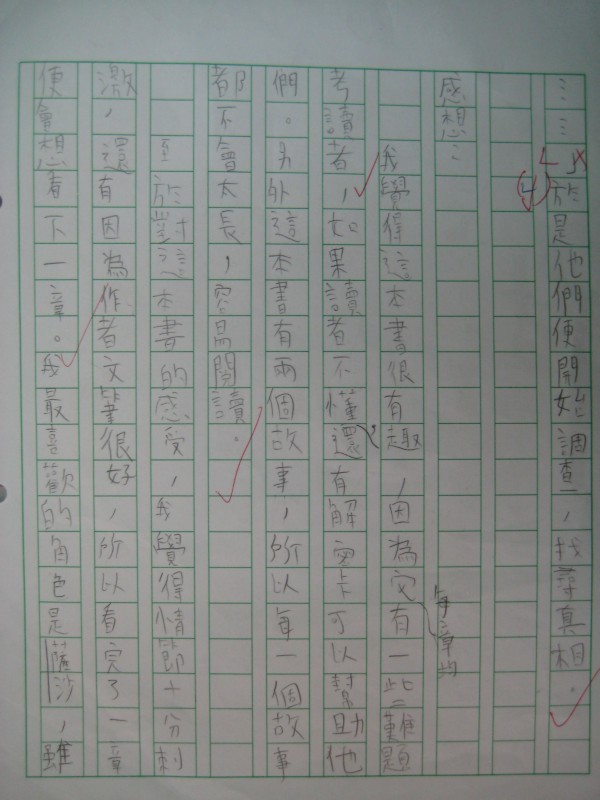 ……於是他們便開始調查,找尋真相。
感想:
我覺得這本書很有趣,因為它有一些難題
每章均
考讀者,如果讀者不懂還有解密卡可以幫助他
們。另外這本書有兩個故事,所以每一個故事
都不會太長,容易閱讀。
至於對這本書的感受,我覺得情節十分刺
激,還有因為作者文筆很好,所以看完了一章
便會想看下一章。我最喜歡的角色是薩沙,雖